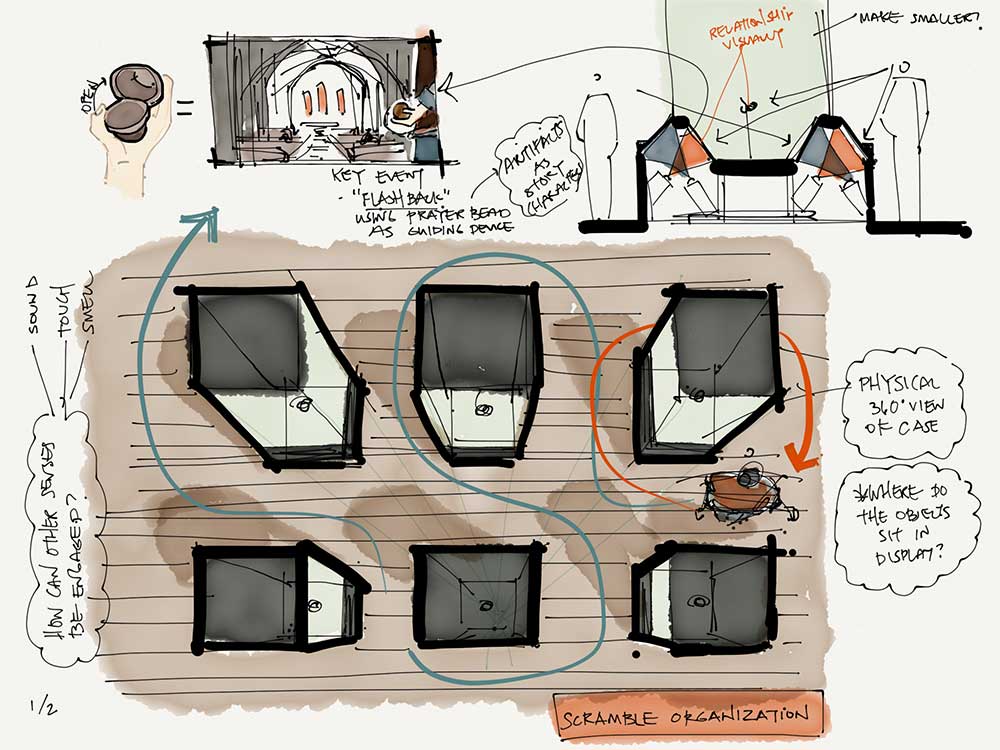 OPEN
=
KEY EVENT
- "FLASHBACK"
USING PRAYER BEAD
AS GUIDING DEVICE
ARTIFACTS
AS
STORY
CHARACTERS
RELATIONSHIP
VISUALLY
MAKE SMALLER?
SOUND
TOUCH
SMELL
HOW CAN OTHER SENSES
BE ENGAGED?
PHYSICAL
360° VIEW
OF CASE
*WHERE DO
THE OBJECTS
SIT IN
DISPLAY?
1/2
SCRAMBLE ORGANIZATION